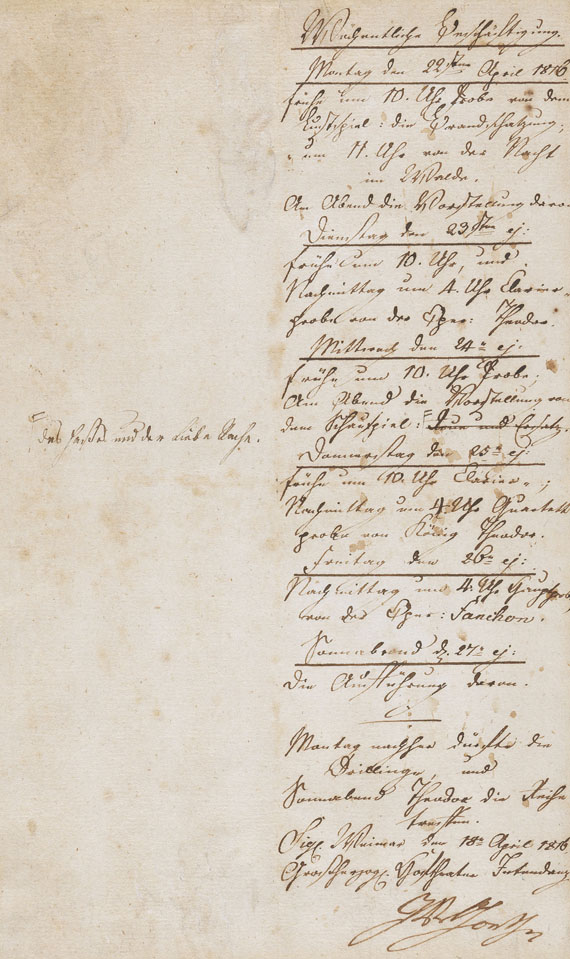 Wöchentliche Beschäftigung.
Montag den 22sten April 1816
frühe um 10. Uhr Probe von dem
Lustspiel: die Brandschatzung;
um 11. Uhr von der Nacht
im Walde.
Am Abend die Vorstellung davon.
Dienstag den 23sten ej:
frühe um 10. Uhr, und
Nachmittag um 4. Uhr Clavier-
probe von der Oper: Theodor.
Mittwoch den 24n ej:
frühe um 10. Uhr Probe;
Am Abend die Vorstellung von
dem Schauspiel: und Ersatz.
des Hasses und der Liebe Rache.
Donnerstag den 25n ej:
frühe um 10. Uhr Clavier-;
Nachmittag um 4. Uhr Quartett
probe von König Theodor.
Freitag den 26n ej:
Nachmittag um 4. Uhr Hauptprobe
von der Oper: Fanchon.
Sonnabend d. 27n ej:
die Aufführung davon.
Montag nachher dürfte die
Drillinge, und
Sonnabend Theodor die Reihe
treffen.
Sig. Weimar den 18n April 1816
Grosherzogl. Hoftheater Intendanz
JWGoethe